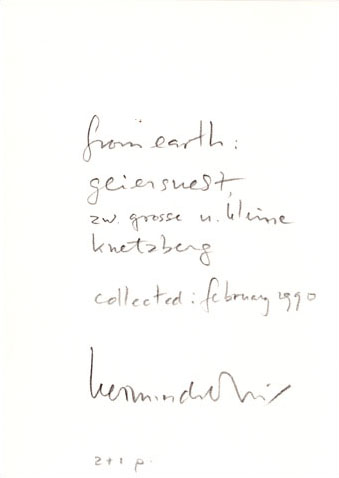 from earth:
geiersnest,
zw. grosse u. kleine
knetzberg
collected: february 1990
herman de vries
2+1 p.